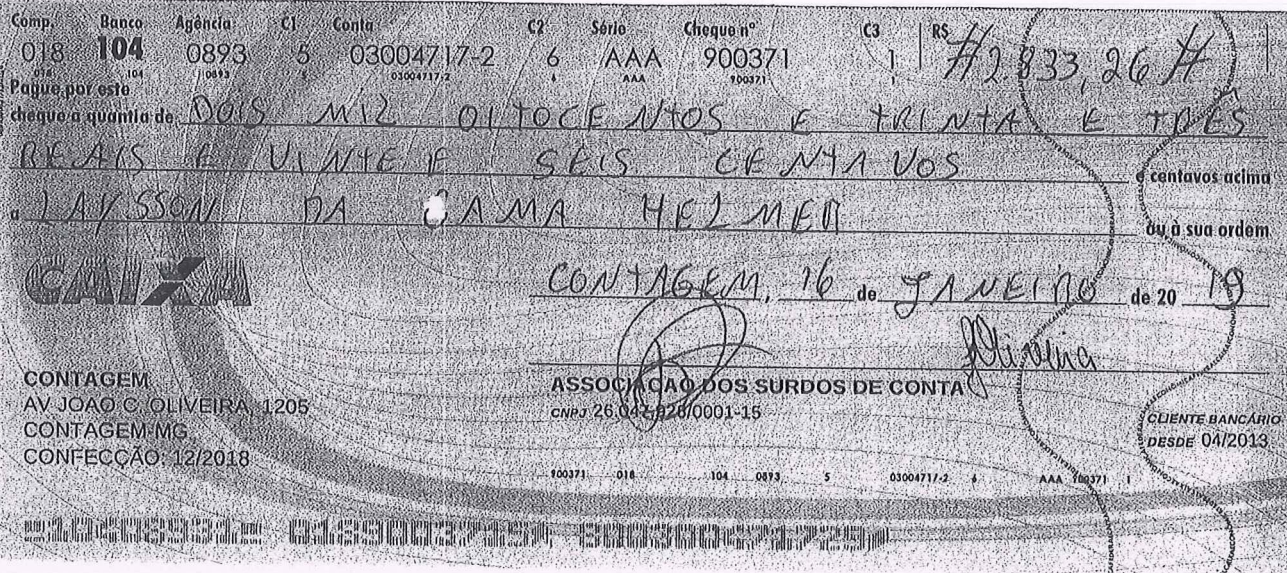 Comp. Banco Agência C1 Conta C2 Série Cheque nº C3 R$
018 104 0893 5 03004717-2 6 AAA 900371 1 #2.833,26#
018 104 0893 5 03004717-2 6 AAA 900371 1
Pague por este
cheque a quantia de DOIS MIL OITOCENTOS E TRINTA E TRES
REAIS E VINTE E SEIS CENTAVOS e centavos acima
a LAYSSON DA GAMA HELMER ou à sua ordem
CAIXA
CONTAGEM, 16 de JANEIRO de 20 19
CONTAGEM
AV JOAO C. OLIVEIRA, 1205
CONTAGEM-MG
CONFECÇÃO: 12/2018
ASSOCIACAO DOS SURDOS DE CONTA
CNPJ 26.047.928/0001-15
CLIENTE BANCÁRIO
DESDE 04/2013
900371 018 104 0893 5 03004717-2 6 AAA 900371 1